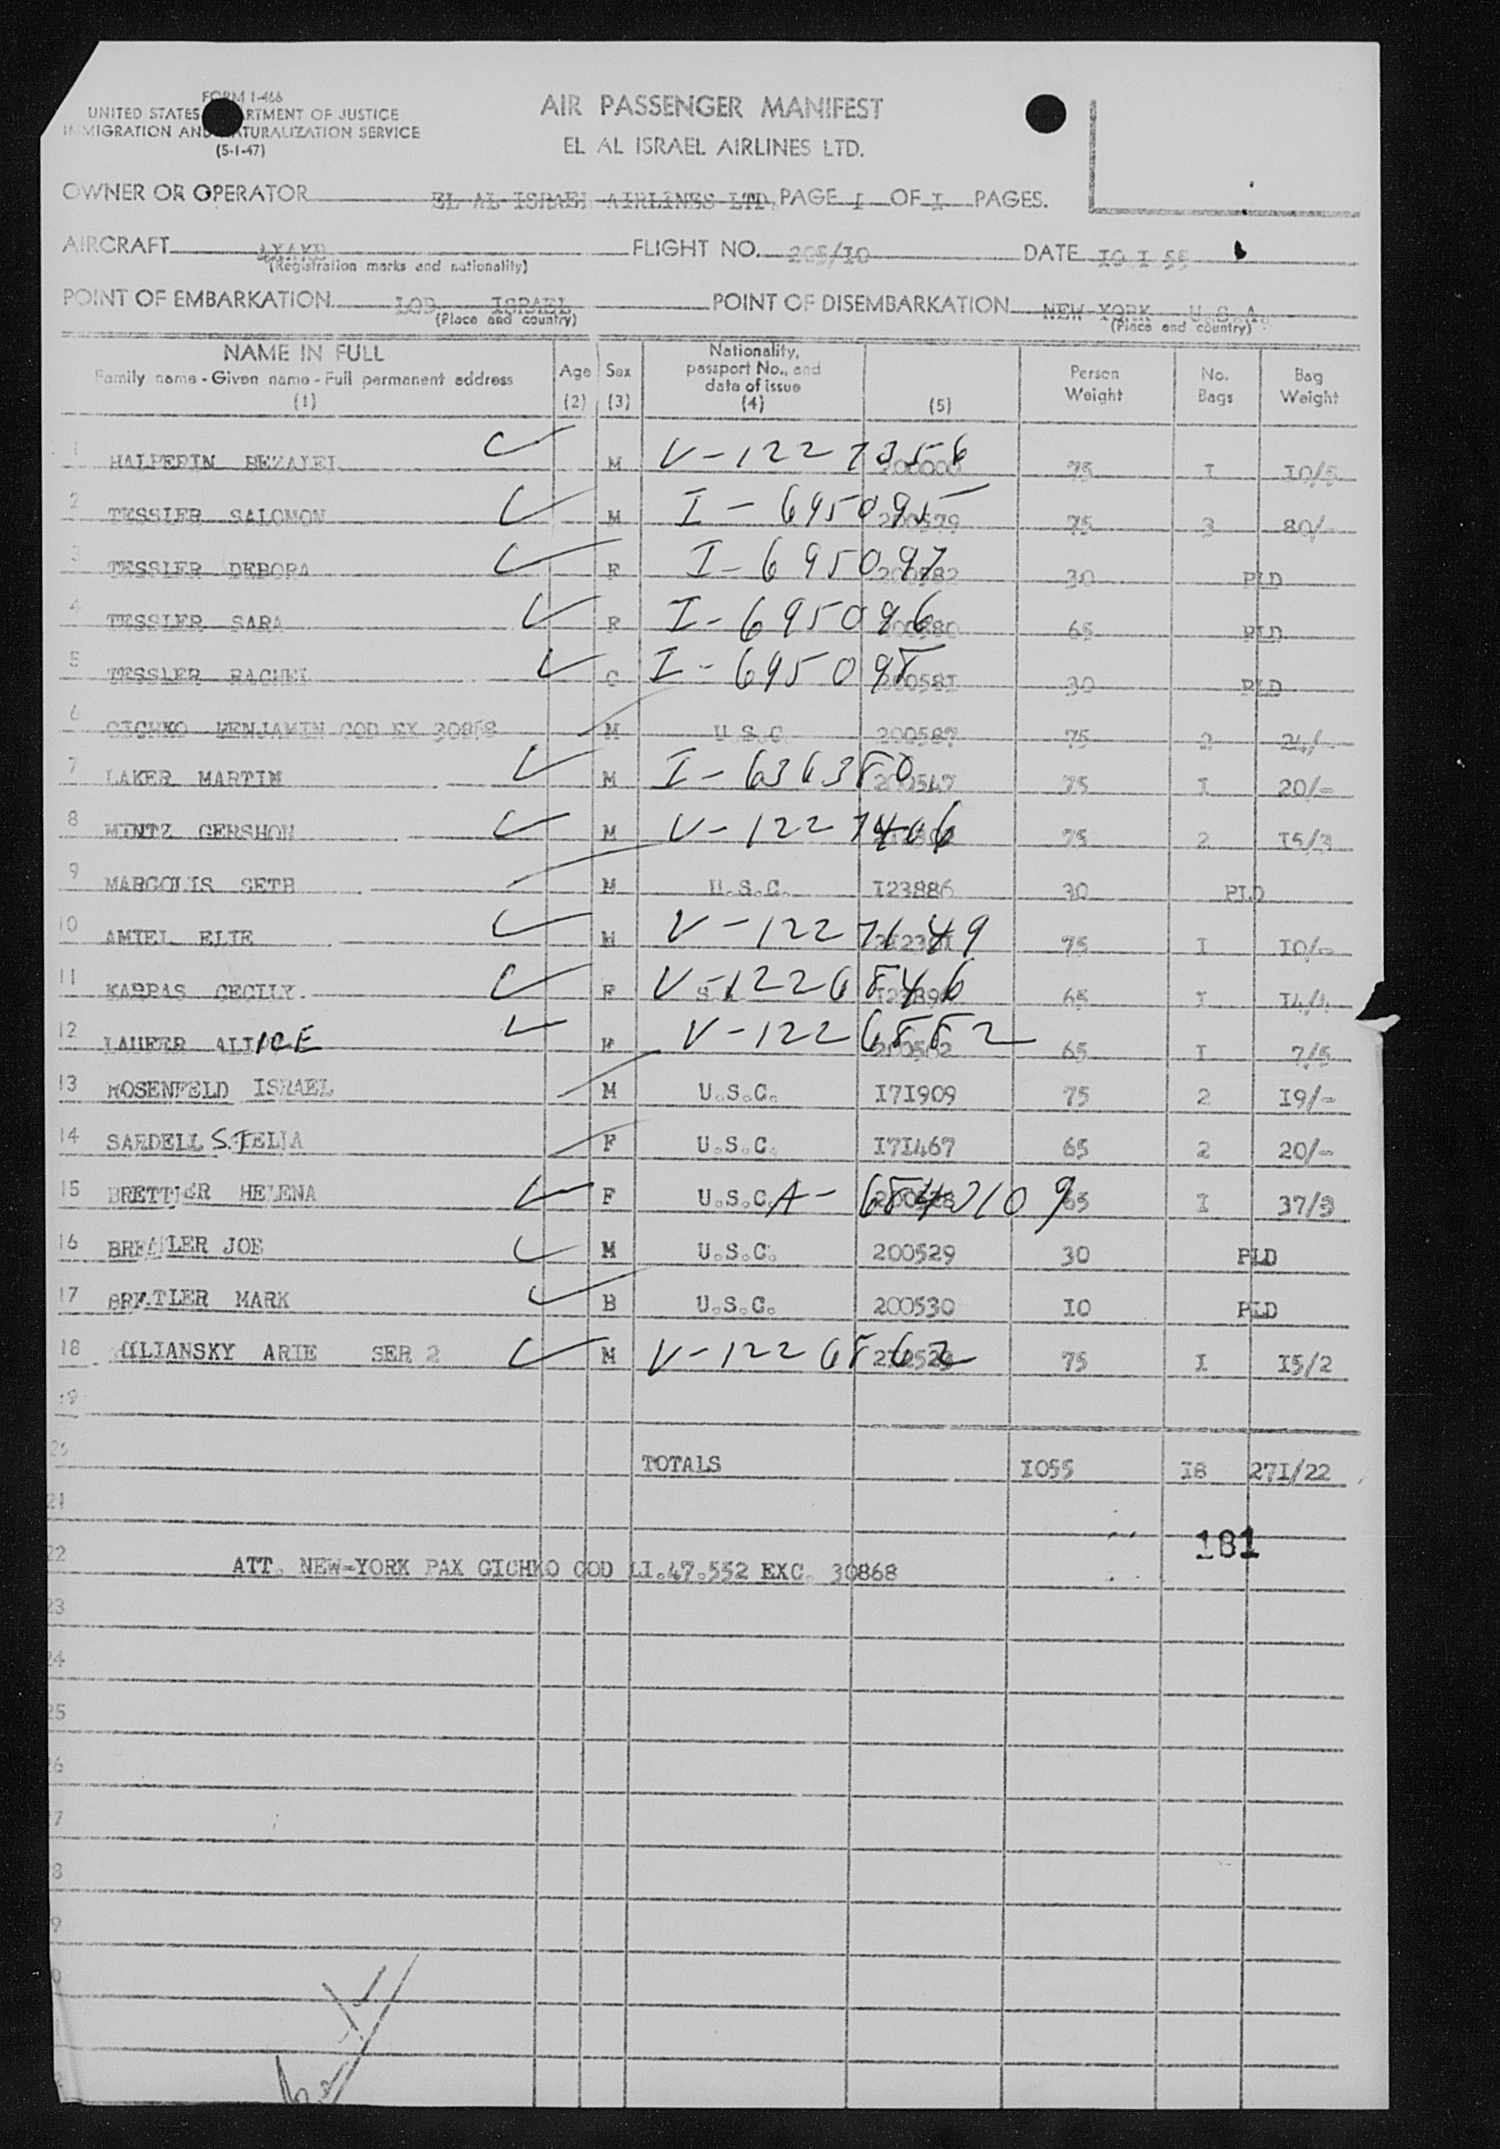 FORM I-466
UNITED STATES DEPARTMENT OF JUSTICE
IMMIGRATION AND NATURALIZATION SERVICE
(5-1-47)
AIR PASSENGER MANIFEST
EL AL ISRAEL AIRLINES LTD.
OWNER OR OPERATOR EL AL ISRAEL AIRLINES LTD. PAGE I OF I PAGES.
AIRCRAFT 4XAKB FLIGHT NO. 205/I0 DATE I0 I 55
(Registration marks and nationality)
POINT OF EMBARKATION LOD ISRAEL POINT OF DISEMBARKATION NEW YORK U.S.A.
(Place and country) (Place and country)
NAME IN FULL Family name - Given name - Full permanent address (1) Age (2) Sex (3) Nationality, passport No., and date of issue (4) (5) Person Weight No. Bags Bag Weight
1 HALPERIN BEZALEL M V-1227356 75 I I0/5
2 TESSLER SALOMON M I-695095 200579 75 3 80/-
3 TESSLER DEBORA F I-695097 200582 30 PLD
4 TESSLER SARA F I-695096 200580 65 PLD
5 TESSLER RACHEL C I-695098 20058I 30 PLD
6 GICHKO BENJAMIN COD EX 30868 M U.S.C. 200587 75 2 24/-
7 LAKER MARTIN M I-636380 200547 75 I 20/-
8 MINTZ GERSHON M V-1227406 75 2 I5/3
9 MARGOLIS SETH M U.S.C. I23886 30 PLD
10 AMIEL ELIE M V-1227149 75 I I0/-
11 KARPAS CECILY F V-1226846 65 I I4/4
12 LAUFER ALICE F V-1226882 65 I 7/5
13 ROSENFELD ISRAEL M U.S.C. I7I909 75 2 I9/-
14 SARDELL STELLA F U.S.C. I7I467 65 2 20/-
15 BRETTLER HELENA F U.S.C. A-6842109 65 I 37/3
16 BRETTLER JOE M U.S.C. 200529 30 PLD
17 BRETTLER MARK B U.S.C. 200530 I0 PLD
18 MILIANSKY ARIE SER 2 M V-1226862 75 I I5/2
19
20 TOTALS I055 I8 27I/22
21
181
22 ATT. NEW-YORK PAX GICHKO COD LI.47.552 EXC. 30868
23
24
25